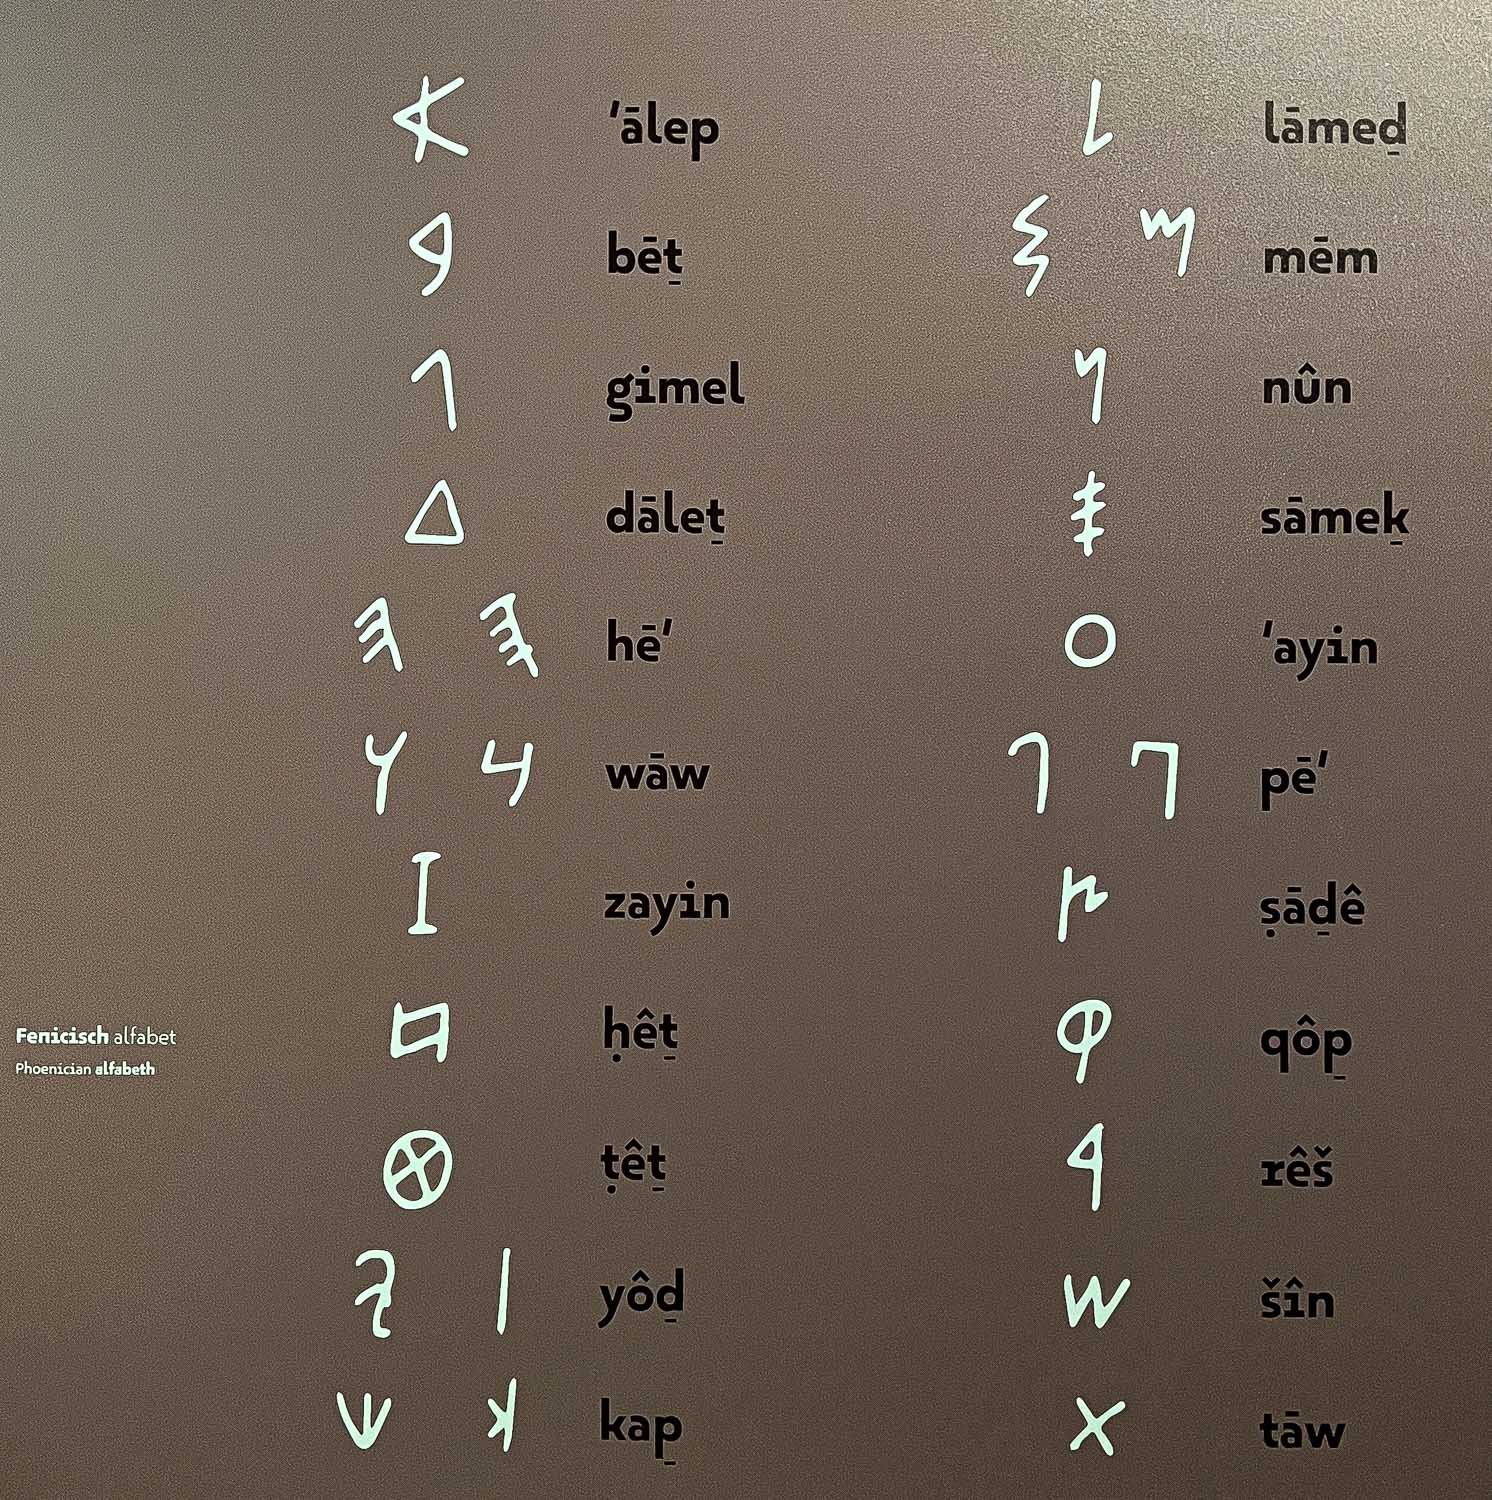 𐤀 ʾālep
𐤁 bēṯ
𐤂 gimel
𐤃 dāleṯ
𐤄 𐤄 hēʾ
𐤅 𐤅 wāw
𐤆 zayin
𐤇 ḥêṯ
𐤈 ṭêṯ
𐤉 𐤉 yôḏ
𐤊 𐤊 kap̱
𐤋 lāmeḏ
𐤌 𐤌 mēm
𐤍 nûn
𐤎 sāmeḵ
𐤏 ʾayin
𐤐 𐤐 pēʾ
𐤑 ṣāḏê
𐤒 qôp̱
𐤓 rêš
𐤔 šîn
𐤕 tāw
Fenicisch alfabet
Phoenician alfabeth